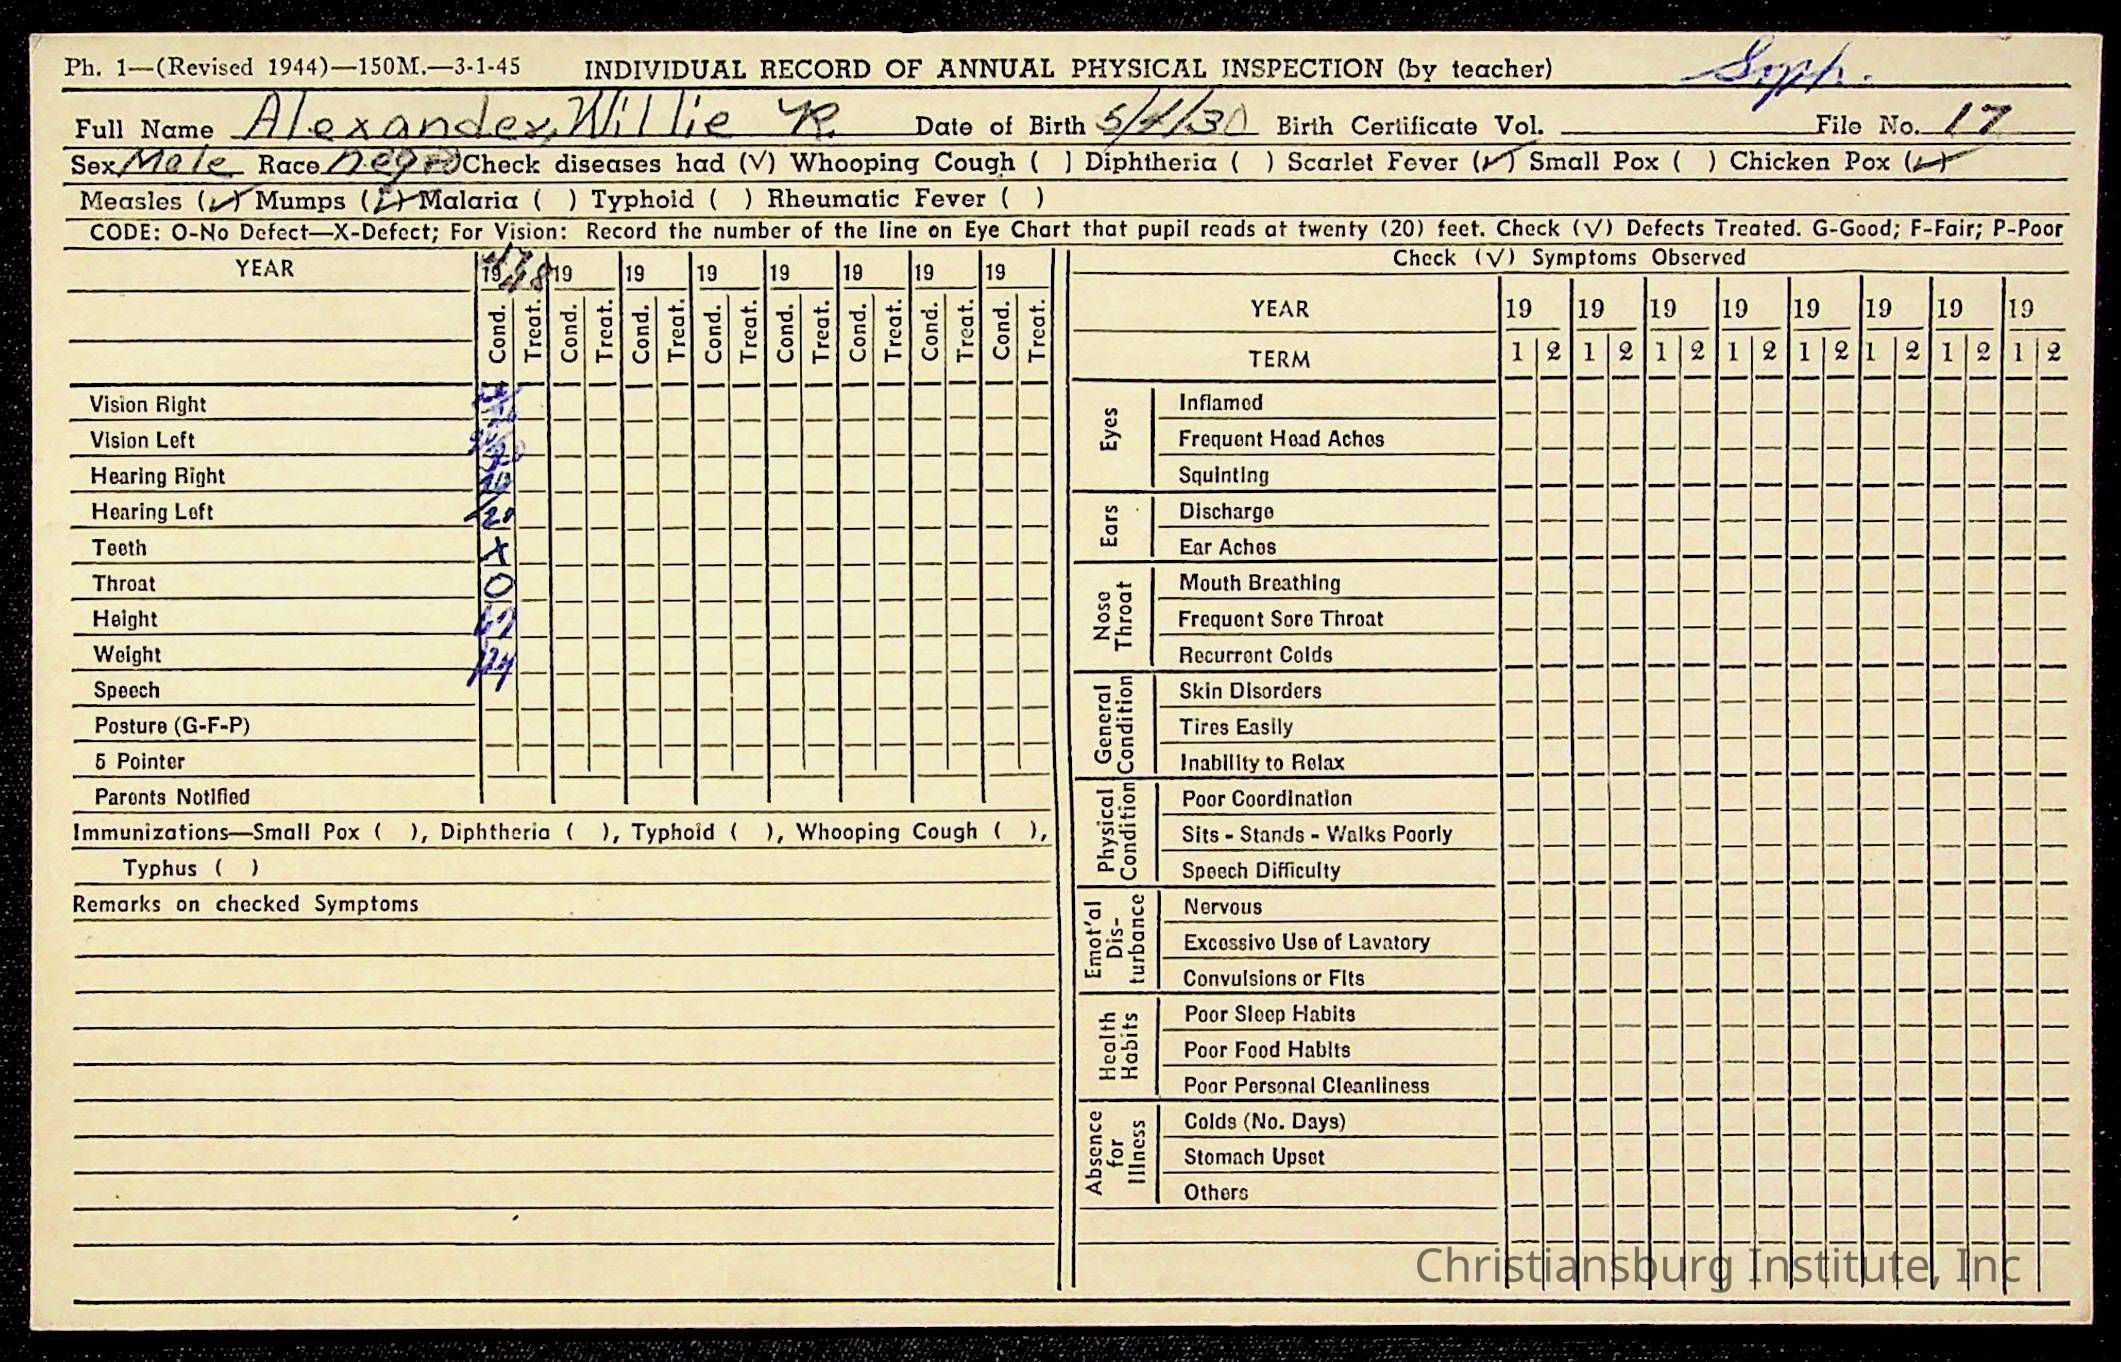 Ph. 1—(Revised 1944)—150M.—3-1-45 INDIVIDUAL RECORD OF ANNUAL PHYSICAL INSPECTION (by teacher) Soph.
Full Name Alexander, Willie R. Date of Birth Birth Certificate Vol. File No. 17
Sex Male Race Negro Check diseases had (√) Whooping Cough ( ) Diphtheria ( ) Scarlet Fever (✓) Small Pox ( ) Chicken Pox (✓)
Measles (✓) Mumps (✓) Malaria ( ) Typhoid ( ) Rheumatic Fever ( )
CODE: O-No Defect—X-Defect; For Vision: Record the number of the line on Eye Chart that pupil reads at twenty (20) feet. Check (√) Defects Treated. G-Good; F-Fair; P-Poor
YEAR 19 47 48 19 19 19 19 19 19 19
Cond. Treat. Cond. Treat. Cond. Treat. Cond. Treat. Cond. Treat. Cond. Treat. Cond. Treat. Cond. Treat.
Vision Right
Vision Left
Hearing Right
Hearing Left
Teeth X
Throat O
Height
Weight
Speech
Posture (G-F-P)
5 Pointer
Parents Notified
Immunizations—Small Pox ( ), Diphtheria ( ), Typhoid ( ), Whooping Cough ( ),
Typhus ( )
Remarks on checked Symptoms
Check (√) Symptoms Observed
YEAR 19 19 19 19 19 19 19 19
TERM 1 2 1 2 1 2 1 2 1 2 1 2 1 2 1 2
Eyes
Inflamed
Frequent Head Aches
Squinting
Ears
Discharge
Ear Aches
Nose Throat
Mouth Breathing
Frequent Sore Throat
Recurrent Colds
General Condition
Skin Disorders
Tires Easily
Inability to Relax
Physical Condition
Poor Coordination
Sits - Stands - Walks Poorly
Speech Difficulty
Emot'al Dis- turbance
Nervous
Excessive Use of Lavatory
Convulsions or Fits
Health Habits
Poor Sleep Habits
Poor Food Habits
Poor Personal Cleanliness
Absence for Illness
Colds (No. Days)
Stomach Upset
Others
Christiansburg Institute, Inc